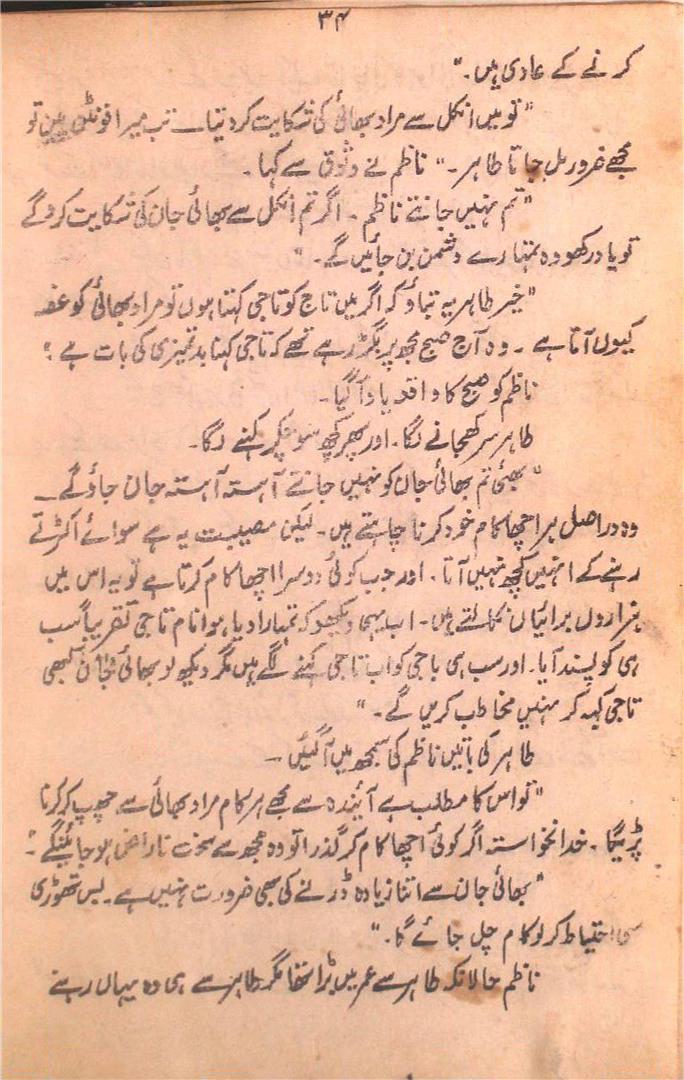 ۳۴
کرنے کے عادی ہیں۔"
"تو میں انکل سے مراد بھائی کی شکایت کر دیتا۔ تب میرا فونٹن پین تو
مجھے ضرور مل جاتا طاہر۔" ناظم نے وثوق سے کہا۔
"تم نہیں جانتے ناظم۔ اگر تم انکل سے بھائی جان کی شکایت کرو گے
تو یاد رکھو وہ تمہارے دشمن بن جائیں گے۔"
"خیر طاہر یہ بتاؤ کہ اگر میں تاج کو تاجی کہتا ہوں تو مراد بھائی کو غصہ
کیوں آتا ہے۔ وہ آج صبح مجھ پر بگڑ رہے تھے کہ تاجی کہنا بدتمیزی کی بات ہے؟
ناظم کو صبح کا واقعہ یاد آ گیا۔
طاہر سر کھجانے لگا۔ اور پھر کچھ سوچکر کہنے لگا۔
"بھئی تم بھائی جان کو نہیں جانتے آہستہ آہستہ جان جاؤ گے۔
وہ دراصل ہر اچھا کام خود کرنا چاہتے ہیں۔ لیکن مصیبت یہ ہے سوائے اکڑتے
رہنے کے انہیں کچھ نہیں آتا۔ اور جب کوئی دوسرا اچھا کام کرتا ہے تو یہ اس میں
ہزاروں برائیاں نکالتے ہیں۔ اب یہی دیکھو کہ تمہارا دیا ہوا نام تاجی تقریباً سب
ہی کو پسند آیا۔ اور سب ہی باجی کو اب تاجی کہنے لگے ہیں مگر دیکھ لو بھائی جان کبھی
تاجی کہہ کر نہیں مخاطب کریں گے۔"
طاہر کی باتیں ناظم کی سمجھ میں آ گئیں۔
"تو اس کا مطلب ہے آئندہ سے مجھے ہر کام مراد بھائی سے چھپ کر کرنا
پڑیگا۔ خدانخواستہ اگر کوئی اچھا کام کر گذرا تو وہ مجھ سے سخت ناراض ہو جائینگے۔"
"بھائی جان سے اتنا زیادہ ڈرنے کی بھی ضرورت نہیں ہے۔ بس تھوڑی
سی احتیاط کر لو کام چل جائے گا۔"
ناظم حالانکہ طاہر سے عمر میں بڑا تھا مگر طاہر سے ہی وہ یہاں رہنے